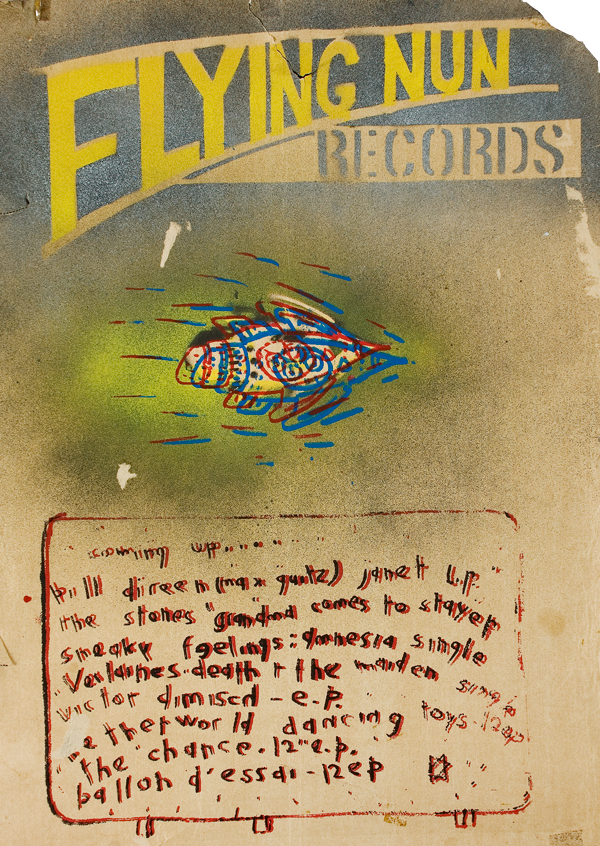 FLYING NUN
RECORDS
coming up......
bill direen (max quitz) janett l.p.
the stones "grandma comes to stay ep
sneaky feelings: amnesia single
Verlaines-death + the maiden single
victor dimisch - e.p.
e therworld dancing toys-12ep
the chance-12"e.p.
ballon d'essai-12ep